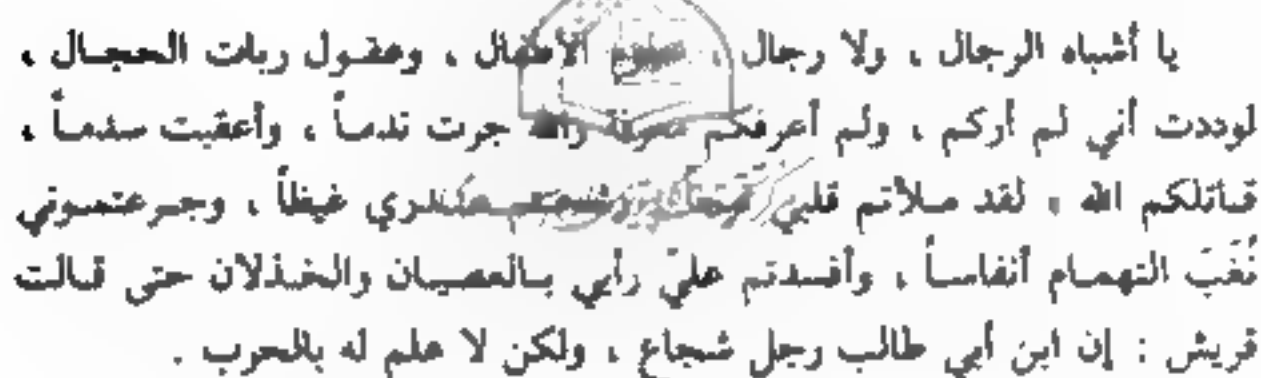 يا أشباه الرجال ، ولا رجال ، حلوم الأطفال ، وعقول ربات الحجال ،
لوددت أني لم أركم ، ولم أعرفكم معرفة والله جرت ندماً ، وأعقبت سدماً ،
قاتلكم الله ، لقد ملأتم قلبي وشحنتم صدري غيظاً ، وجرعتموني
نُغَبَ التهمام أنفاساً ، وأفسدتم عليّ رأيي بالعصيان والخذلان حتى قالت
قريش : إن ابن أبي طالب رجل شجاع ، ولكن لا علم له بالحرب .